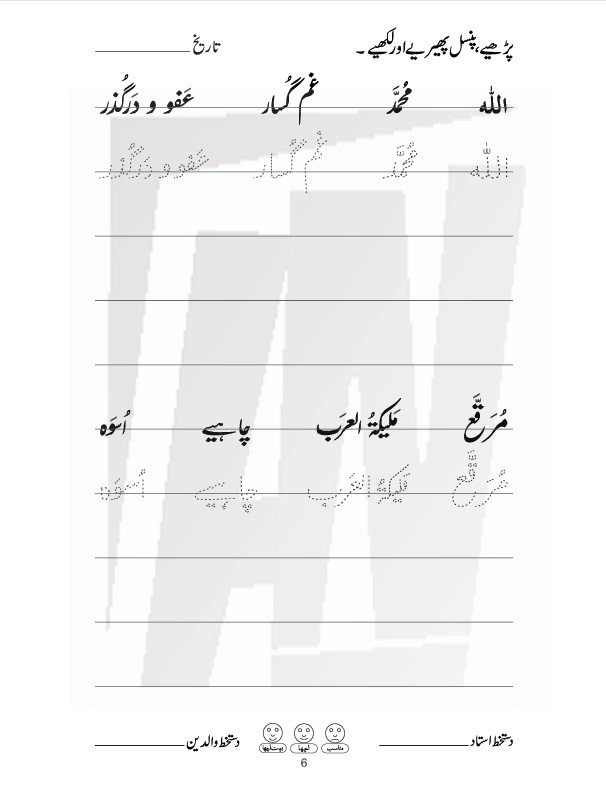 پڑھیے، پنسل پھیریے اور لکھیے ۔ تاریخ
اللہ مُحمَّد غم گُسار عَفو و دَرگُذر
اللہ مُحمَّد غم گُسار عَفو و دَرگُذر
مُرَقَّع مَلیکۃُ العرَب چاہیے اُسوَہ
مُرَقَّع مَلیکۃُ العرَب چاہیے اُسوَہ
دستخط استاد مناسب اچھا بہت اچھا دستخط والدین
6